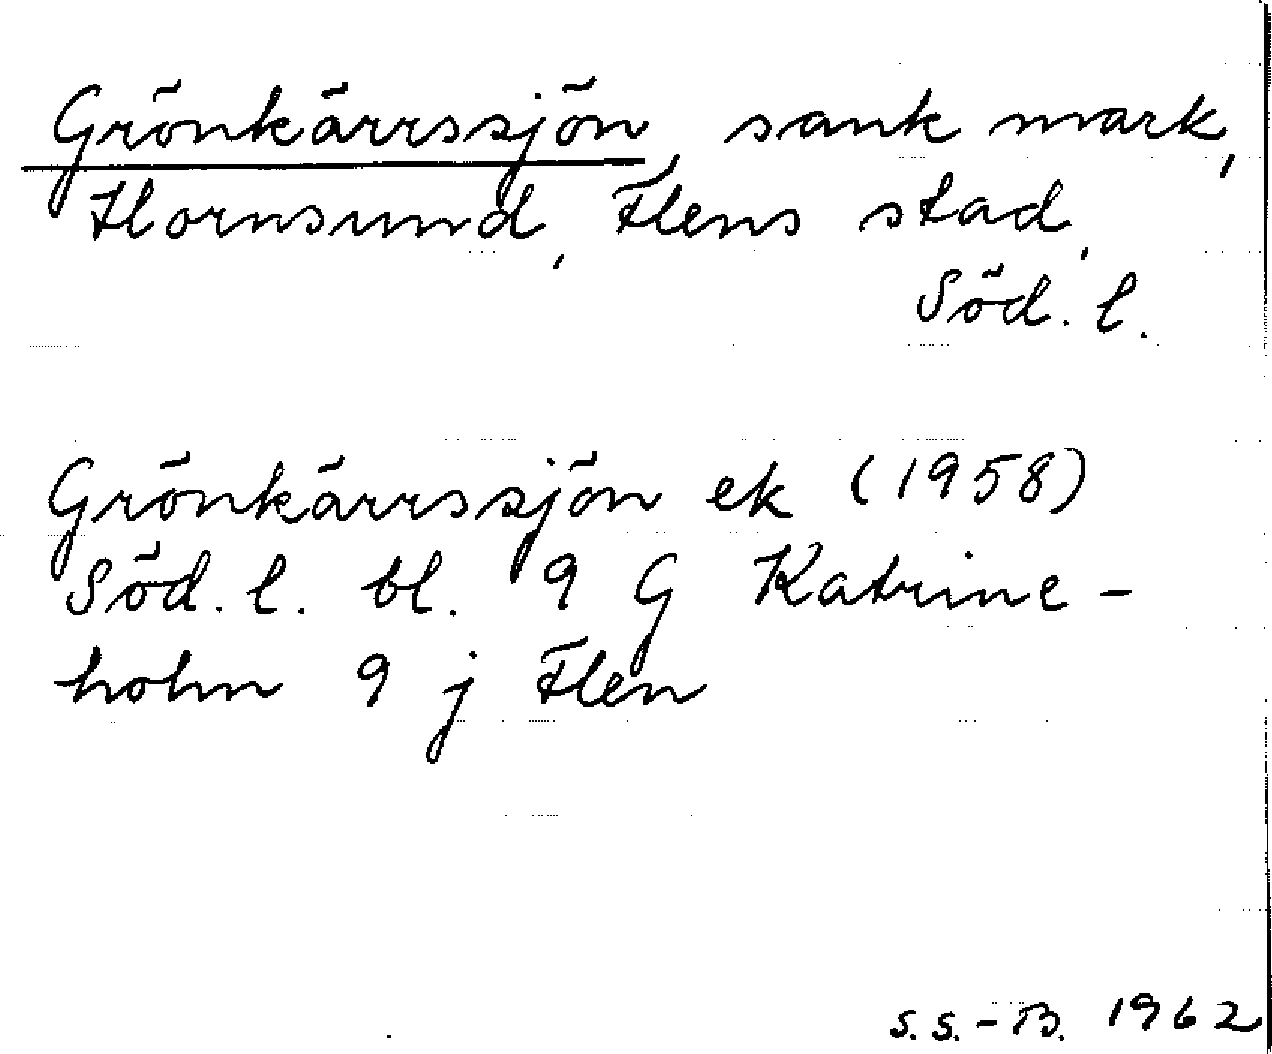 Grönkärrssjön, sank mark,
Hornsund, Flens stad,
Söd. l.
Grönkärrssjön ek (1958)
Söd. l. bl. 9 G Katrine-
holm 9 j Flen
S.S.-B. 1962